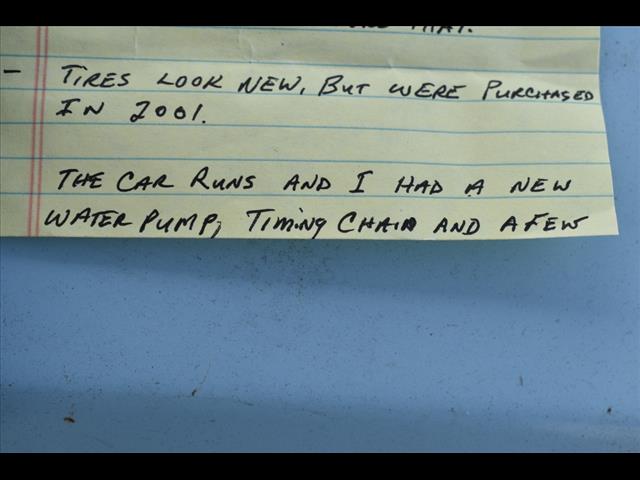 THAT.
- TIRES LOOK NEW, BUT WERE PURCHASED
IN 2001.
THE CAR RUNS AND I HAD A NEW
WATER PUMP, TIMING CHAIN AND A FEW